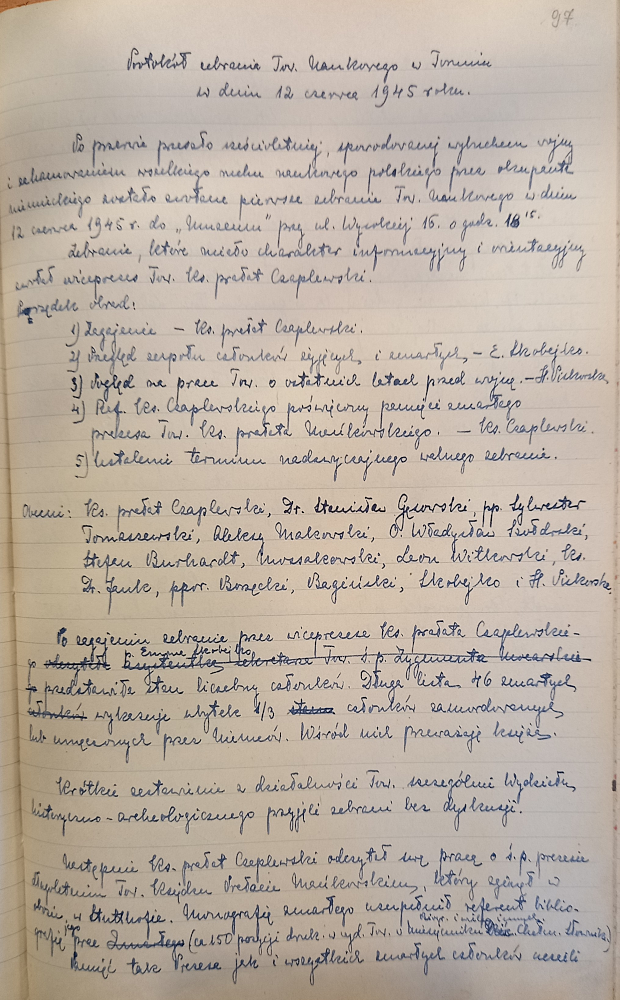 97
Protokół zebrania Tow. Naukowego w Toruniu
w dniu 12 czerwca 1945 roku.
Po przerwie przeszło sześcioletniej, spowodowanej wybuchem wojny
i zahamowaniem wszelkiego ruchu naukowego polskiego przez okupanta
niemieckiego zostało zwołane pierwsze zebranie Tow. Naukowego w dniu
12 czerwca 1945 r. do „Muzeum" przy ul. Wysokiej 16. o godz. 18 15.
Zebranie, które miało charakter informacyjny i orientacyjny
zwołał wiceprezes Tow. ks. prałat Czaplewski.
Porządek obrad:
1) Zagajenie – ks. prałat Czaplewski.
2) Przegląd zespołu członków żyjących i zmarłych – E. Skobejko.
3) Pogląd na prace Tow. o ostatnich latach przed wojną. – H. Piskorska
4) Ref. ks. Czaplewskiego poświęcony pamięci zmarłego
prezesa Tow. ks. prałata Mańkowskiego. – ks. Czaplewski.
5) Ustalenie terminu nadzwyczajnego walnego zebrania.
Obecni: ks. prałat Czaplewski, Dr. Stanisław pp. Sylwester
Tomaszewski, Aleksy Makowski, O. Władysław Szołdrski,
Stefan Burhardt, Mossakowski, Leon Witkowski, ks.
Dr. Jank, ppor. Borzęcki, Bagiński, Skobejko i H. Piskorska.
Po zagajeniu zebrania przez wiceprezesa ks. prałata Czaplewskie-
p. Emma Skobejko
go asystentka, sekretarza Tow. ś.p. Zygmunta Mocarskie-
go przedstawiła stan liczebny członków. Długa lista 46 zmarłych
członków wykazuje ubytek 1/3 stanu członków zamordowanych
lub umęczonych przez Niemców. Wśród nich przeważają księża.
Krótkie zestawienie z działalności Tow. szczególnie Wydziału
historyczno-archeologicznego przyjęli zebrani bez dyskusji.
Następnie ks. prałat Czaplewski odczytał swą pracę o ś.p. prezesie
długoletnim Tow. księdzu Prałacie Mańkowskim, który zginął w
obozie w Stutthofie. Monografię zmarłego uzupełnił referent biblio-
grafią jego prac Zmarłego (ca 150 pozycji druk. w wyd. Tow. o Miesięczniku Diec. Chełm. Słowniku)
Biogr. i wielu innych.
Pamięć tak Prezesa jak i wszystkich zmarłych członków uczcili